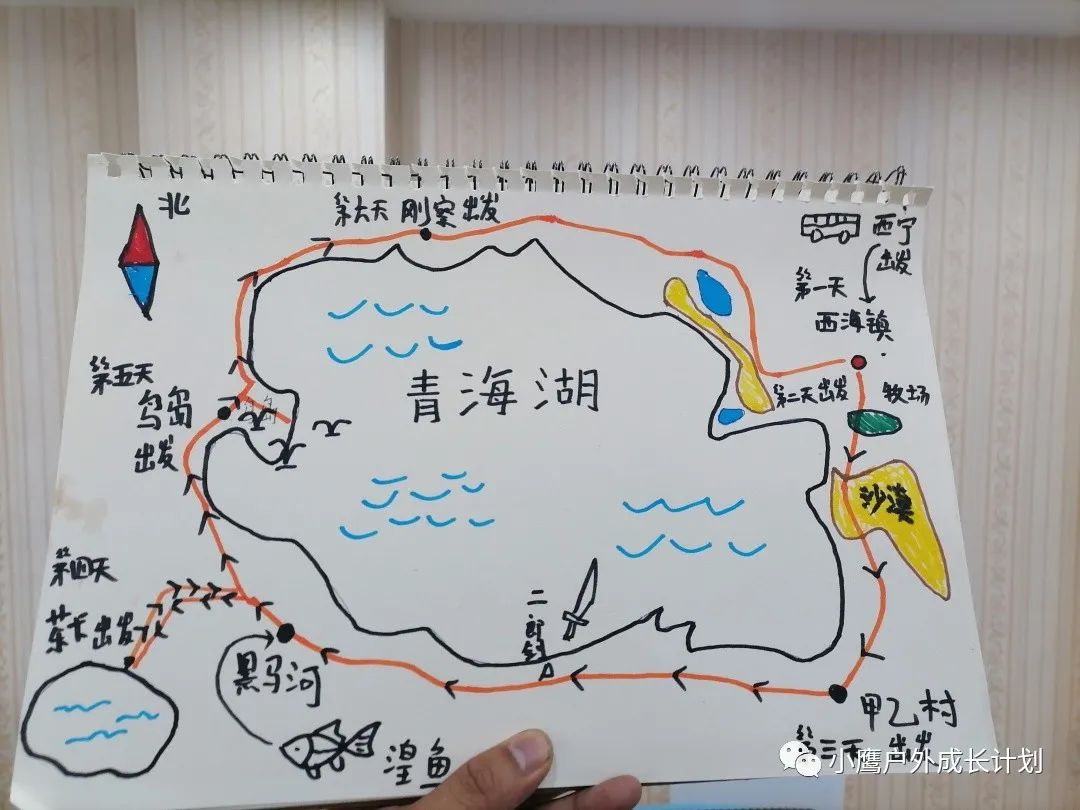 北
第六天 刚察出发
西宁
出发
第一天
西海镇
第二天出发
牧场
沙漠
青海湖
第五天
鸟岛
出发
鸟岛
第四天
茶卡出发
黑马河
湟鱼
二郎剑
甲乙村
第三天 出发
小鹰户外成长计划